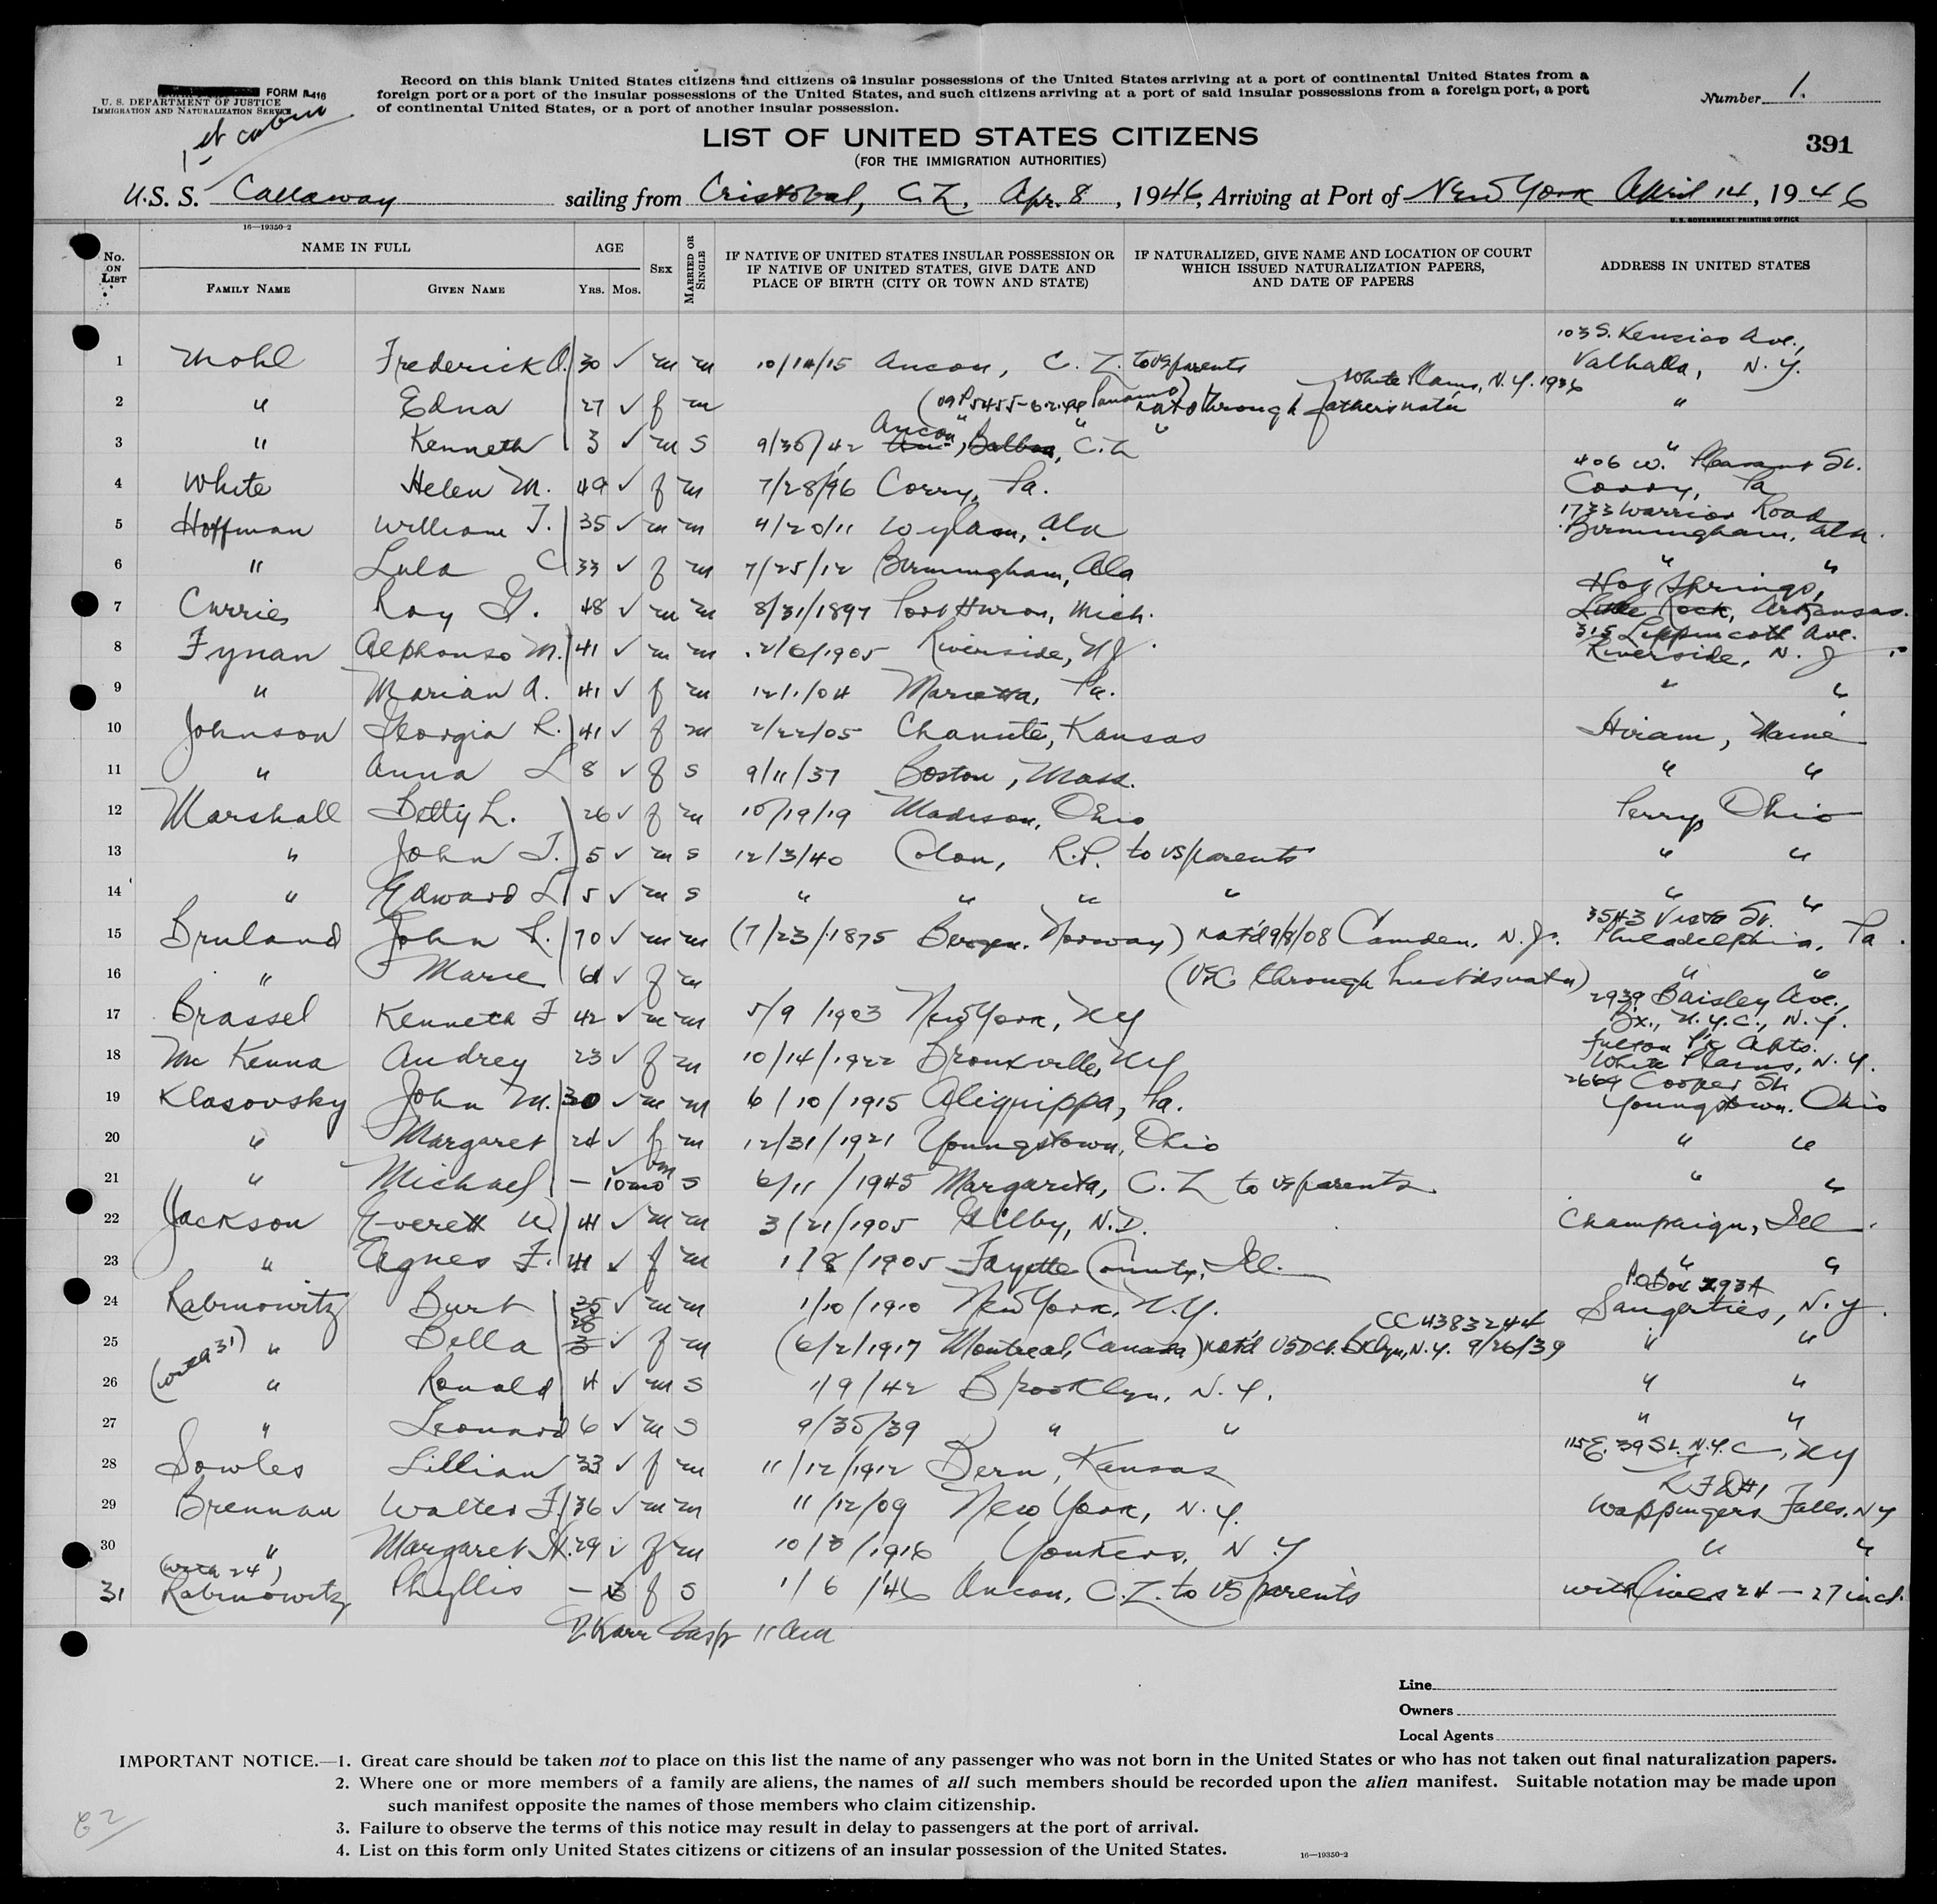 FORM I-416
U. S. DEPARTMENT OF JUSTICE
IMMIGRATION AND NATURALIZATION SERVICE
1st cabin
Record on this blank United States citizens and citizens of insular possessions of the United States arriving at a port of continental United States from a
foreign port or a port of the insular possessions of the United States, and such citizens arriving at a port of said insular possessions from a foreign port, a port
of continental United States, or a port of another insular possession.
Number 1.
LIST OF UNITED STATES CITIZENS
(FOR THE IMMIGRATION AUTHORITIES)
391
U.S. S. Callaway sailing from Cristobal, C.Z., Apr. 8, 1946, Arriving at Port of New York April 14, 1946
16—19350-2
U. S. GOVERNMENT PRINTING OFFICE
No. ON LIST
NAME IN FULL
FAMILY NAME
GIVEN NAME
AGE
YRS. MOS.
SEX
MARRIED OR SINGLE
IF NATIVE OF UNITED STATES INSULAR POSSESSION OR
IF NATIVE OF UNITED STATES, GIVE DATE AND
PLACE OF BIRTH (CITY OR TOWN AND STATE)
IF NATURALIZED, GIVE NAME AND LOCATION OF COURT
WHICH ISSUED NATURALIZATION PAPERS,
AND DATE OF PAPERS
ADDRESS IN UNITED STATES
103 S. Kensico Ave.,
1 Mohl Frederick O. 30 ✓ m m 10/14/15 Ancon, C. Z. to US parents Valhalla, N.Y.
White Plains, N.Y. 1936
2 " Edna 27 ✓ f m through father's nat'n "
3 " Kenneth 3 ✓ m s 9/30/42 Ancon, Balboa, C.Z. " "
406 W. Pleasant St.
4 White Helen M. 49 ✓ f m 7/28/96 Corry, Pa. Corry, Pa
1733 Warrior Road
5 Hoffman William J. 35 ✓ m m 4/20/11 Wylam, Ala Birmingham, Ala.
6 " Lula C 33 ✓ f m 7/25/12 Birmingham, Ala " "
Hot Springs,
7 Currie, Roy G. 48 ✓ m m 8/31/1897 Port Huron, Mich. Little Rock, Arkansas.
315 Lippincott Ave.
8 Fynan Alphonso M. 41 ✓ m m 2/6/1905 Riverside, NJ. Riverside, N. J
9 " Marian A. 41 ✓ f m 12/1/04 Marietta, Pa. " "
10 Johnson Georgia R. 41 ✓ f m 2/22/05 Chanute, Kansas Hiram, Maine
11 " Anna L 8 ✓ f s 9/11/37 Boston, Mass. " "
12 Marshall Betty L. 26 ✓ f m 10/19/19 Madison, Ohio Perry, Ohio
13 " John J. 5 ✓ m s 12/3/40 Colon, R.P. to US parents " "
14 " Edward L 5 ✓ m s " " " " " "
3543 Vista St.
15 Bruland John L. 70 ✓ m m (7/23/1875 Bergen, Norway) nat'd 9/8/08 Camden, N. J. Philadelphia, Pa.
16 " Marie 61 ✓ f m (USC through husb'ds nat'n) " "
2939 Baisley Ave.,
17 Brassel Kenneth F 42 ✓ m m 5/9/1903 New York, NY Bx., N.Y.C., N.Y.
Fulton Pk Apts.
18 McKenna Audrey 23 ✓ f m 10/14/1922 Bronxville, NY White Plains, N.Y.
2669 Cooper St.
19 Klasovsky John M. 30 ✓ m m 6/10/1915 Aliquippa, Pa. Youngstown, Ohio
20 " Margaret 24 ✓ f m 12/31/1921 Youngstown, Ohio " "
21 " Michael — 10 mo m s 6/11/1945 Margarita, C. Z. to US parents " "
22 Jackson Everett W. 41 ✓ m m 3/21/1905 Gilby, N.D. Champaign, Ill.
23 " Agnes F. 41 ✓ f m 1/8/1905 Fayette County, Ill. " "
P.O. Box 293A
24 Rabinowitz Burt 35 ✓ m m 1/10/1910 New York, N.Y. Saugerties, N.Y.
CC 4383244
25 (with 31) " Bella 28 ✓ f m (6/2/1917 Montreal, Canada) nat'd US DCt. Bklyn, N.Y. 9/26/39 " "
26 " Ronald 4 ✓ m s 1/9/42 Brooklyn, N.Y. " "
27 " Leonard 6 ✓ m s 9/30/39 " " " "
115 E. 39 St. N.Y.C., NY
28 Sowles Lillian 33 ✓ f m 11/12/1912 Bern, Kansas
R F D #1
29 Brennan Walter F. 36 ✓ m m 11/12/09 New York, N.Y. Wappingers Falls, NY
30 " Margaret N. 29 ✓ f m 10/3/1916 Yonkers, N.Y " "
(with 24)
31 Rabinowitz Phyllis — 3 f s 1/6/46 Ancon, C.Z. to US parents with lines 24 — 27 incl.
Karr Insp 11 am
Line
Owners
Local Agents
IMPORTANT NOTICE.—1. Great care should be taken not to place on this list the name of any passenger who was not born in the United States or who has not taken out final naturalization papers.
2. Where one or more members of a family are aliens, the names of all such members should be recorded upon the alien manifest. Suitable notation may be made upon
such manifest opposite the names of those members who claim citizenship.
3. Failure to observe the terms of this notice may result in delay to passengers at the port of arrival.
4. List on this form only United States citizens or citizens of an insular possession of the United States.
16—19350-2